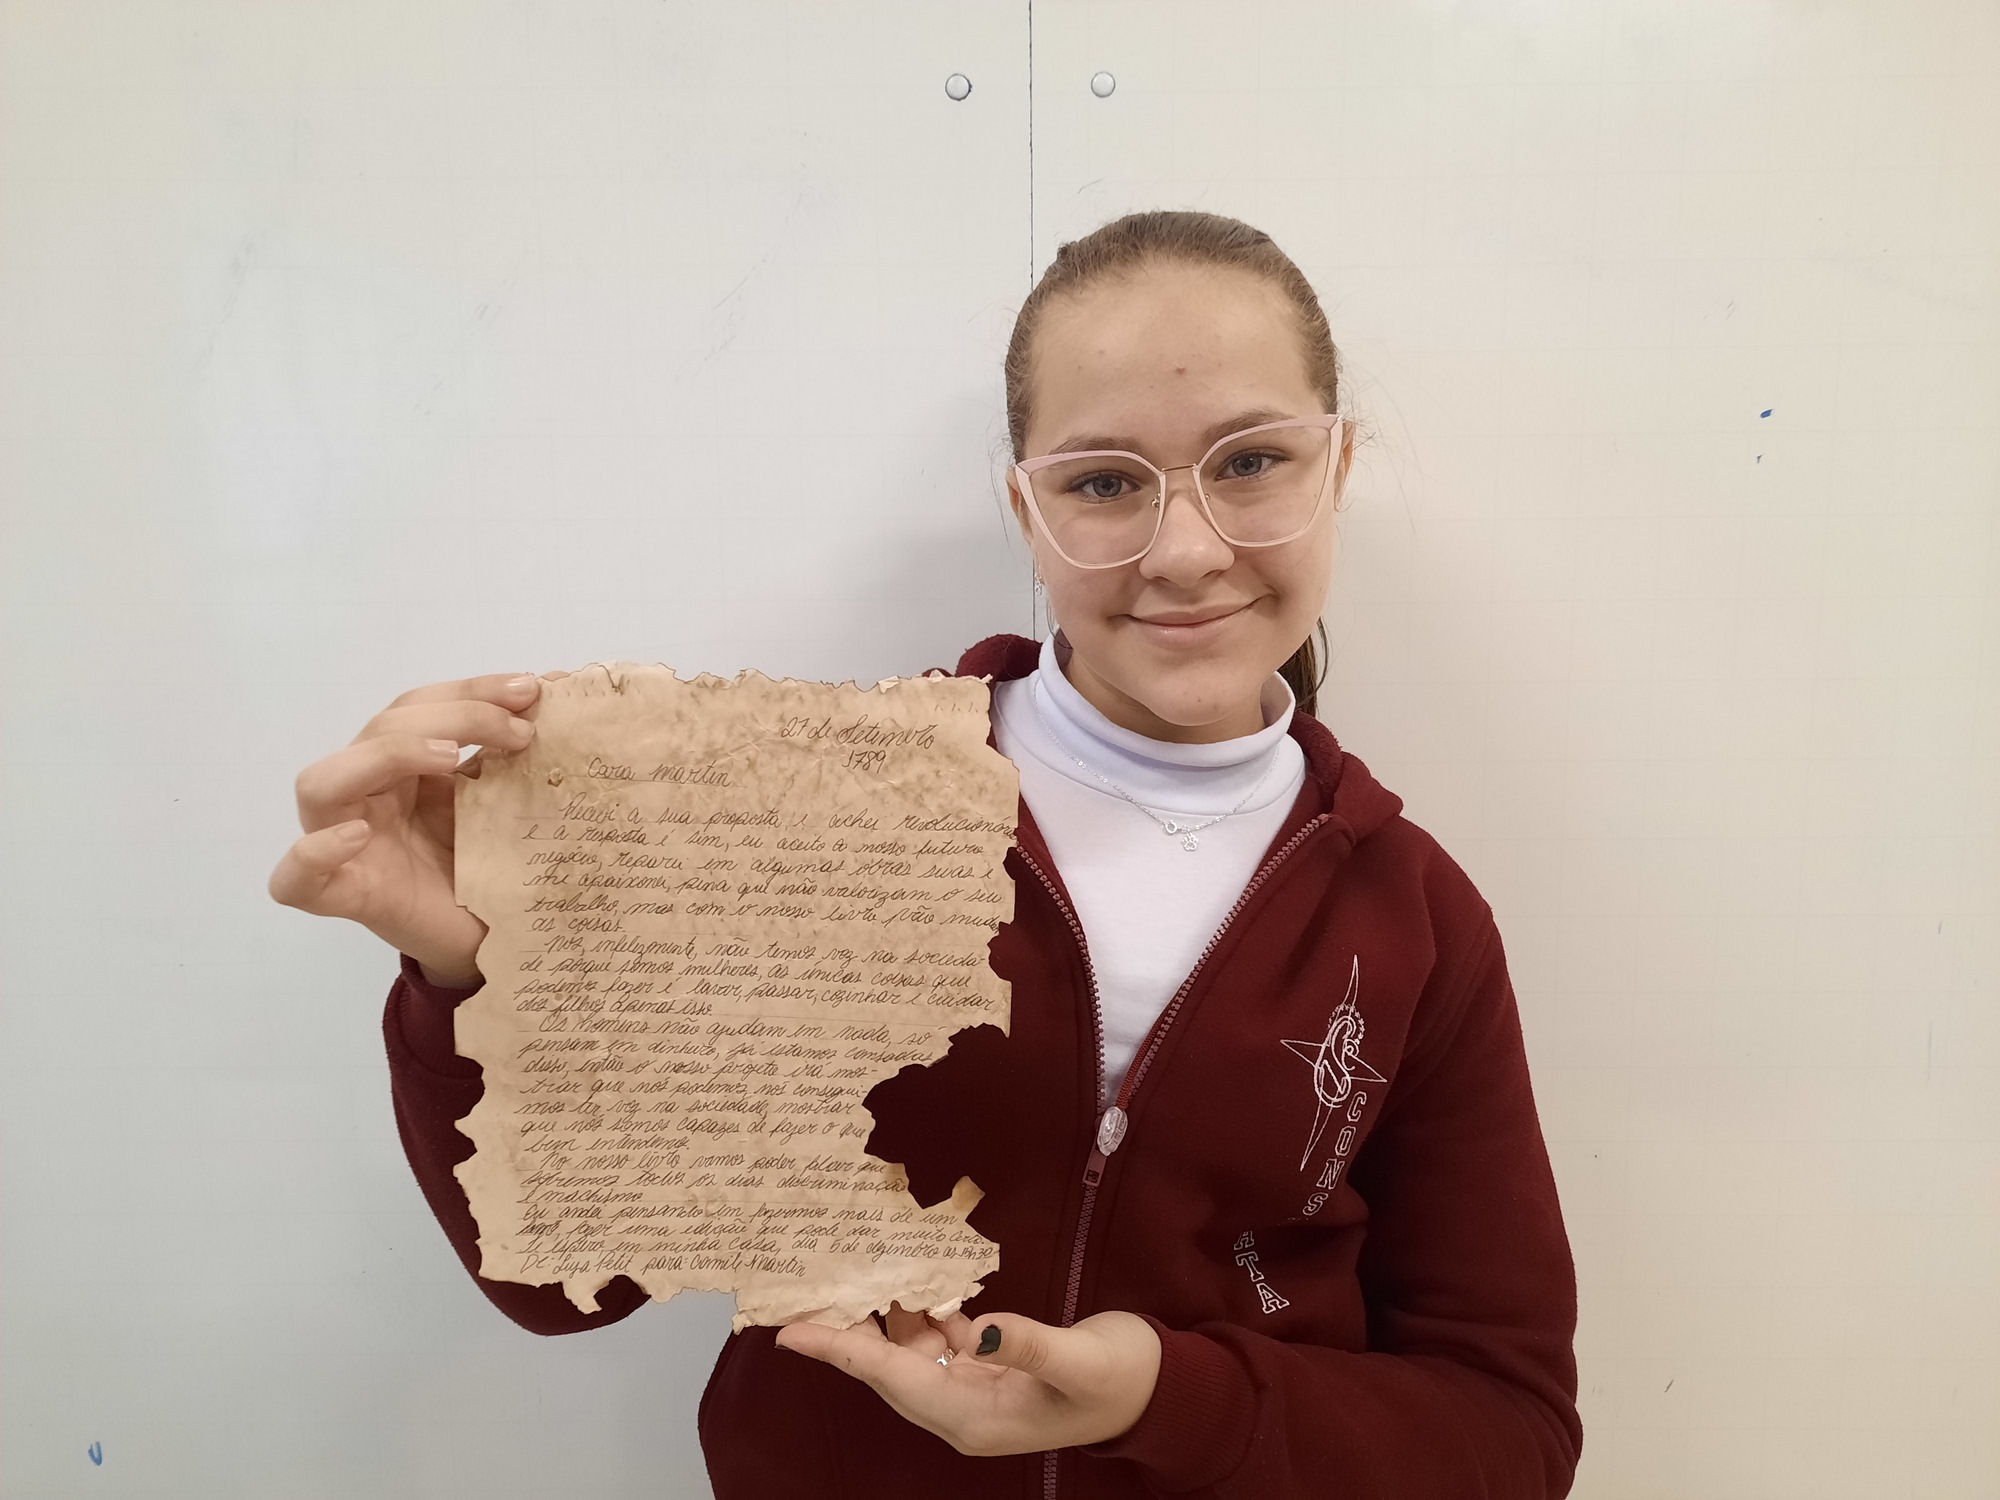 27 de Setembro
1789
Cara Martin
Recebi a sua proposta e achei revolucionária
e a resposta é sim, eu aceito o nosso futuro
negócio, reparei em algumas obras suas e
me apaixonei, pena que não valorizam o seu
trabalho, mas com o nosso livro vão mudar
as coisas.
Nós, infelizmente, não temos voz na socieda-
de porque somos mulheres, as únicas coisas que
podemos fazer é lavar, passar, cozinhar e cuidar
dos filhos apenas isso
Os homens não ajudam em nada, só
pensam em dinheiro, já estamos cansadas
disso, então o nosso projeto irá mos-
trar que nós podemos, nós consegui-
mos ter voz na sociedade, mostrar
que nós somos capazes de fazer o que
bem entendemos.
No nosso livro vamos poder falar que
sofremos todos os dias discriminação
e machismo
Eu andei pensando em fazermos mais de um
livro, fazer uma edição que pode dar muito certo.
te espero em minha casa, dia 5 de dezembro as 15h30
De: Luza Petit para: Camile Martin
CONS
ATA